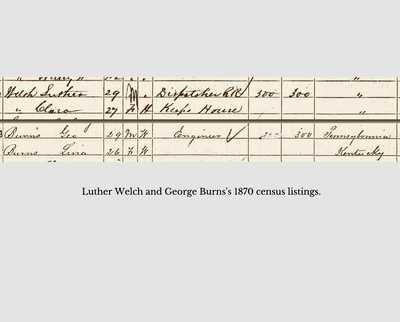 Welch Luther 29 M " Dispatcher R.R. 300 300 "
" Clara 27 F W Keeps House "
Burns Geo 29 M W Engineer 300 Pennsylvania
Burns Lina 26 F W Kentucky
Luther Welch and George Burns's 1870 census listings.